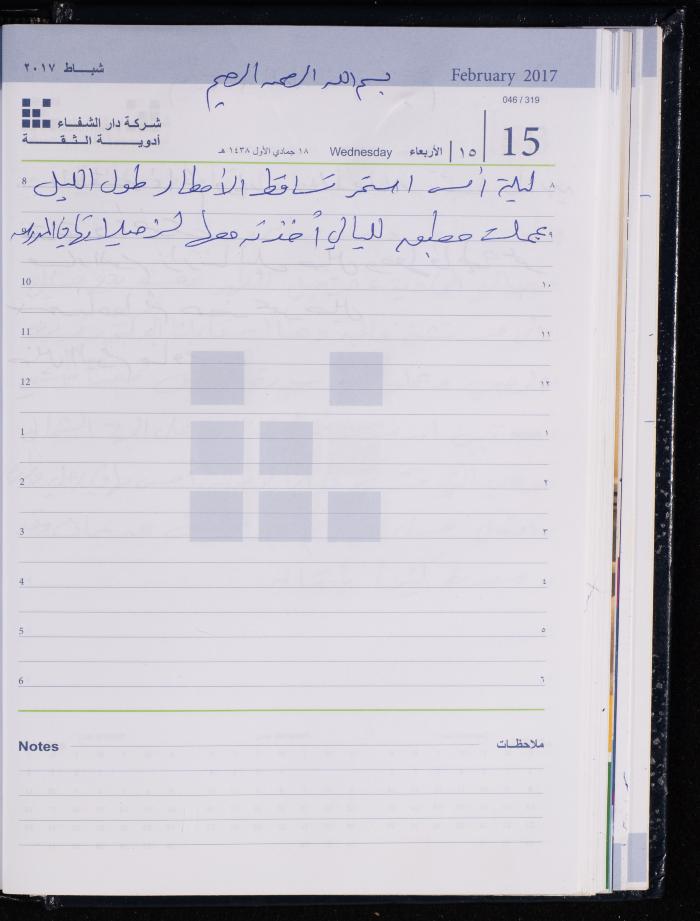 شباط ٢٠١٧
بسم الله الرحمن الرحيم
February 2017
046 / 319
شركة دار الشفاء
أدويـة الثقـة
١٨ جمادي الأول ١٤٣٨ هـ Wednesday الأربعاء ١٥ 15
8 ليلة أمس استمر تساقط الأمطار طول الليل ٨
ليالي أخذت معها ٩
10 ١٠
11 ١١
12 ١٢
1 ١
2 ٢
3 ٣
4 ٤
5 ٥
6 ٦
Notes ملاحظات